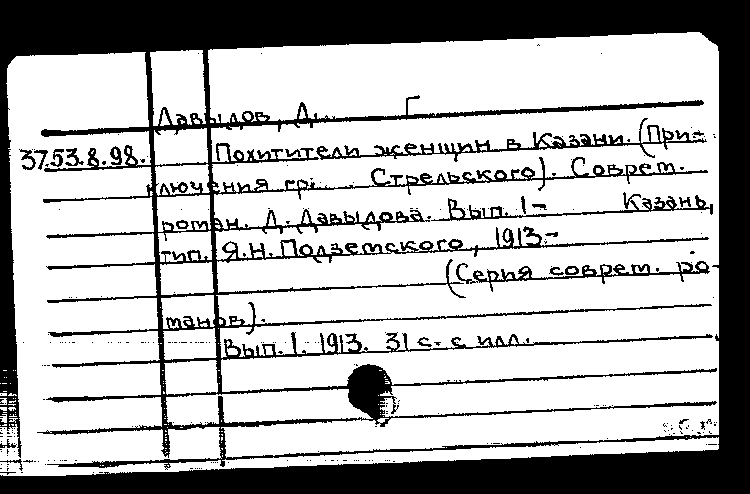 Давыдов, Д. Г
37.53.8.98. Похитители женщин в Казани. (При-
ключения гр. Стрельского). Соврем.
роман. Д. Давыдова. Вып. 1- Казань,
тип. Я.Н. Подземского, 1913.-
(Серия соврем. ро-
манов).
Вып. 1. 1913. 31 с. с илл.